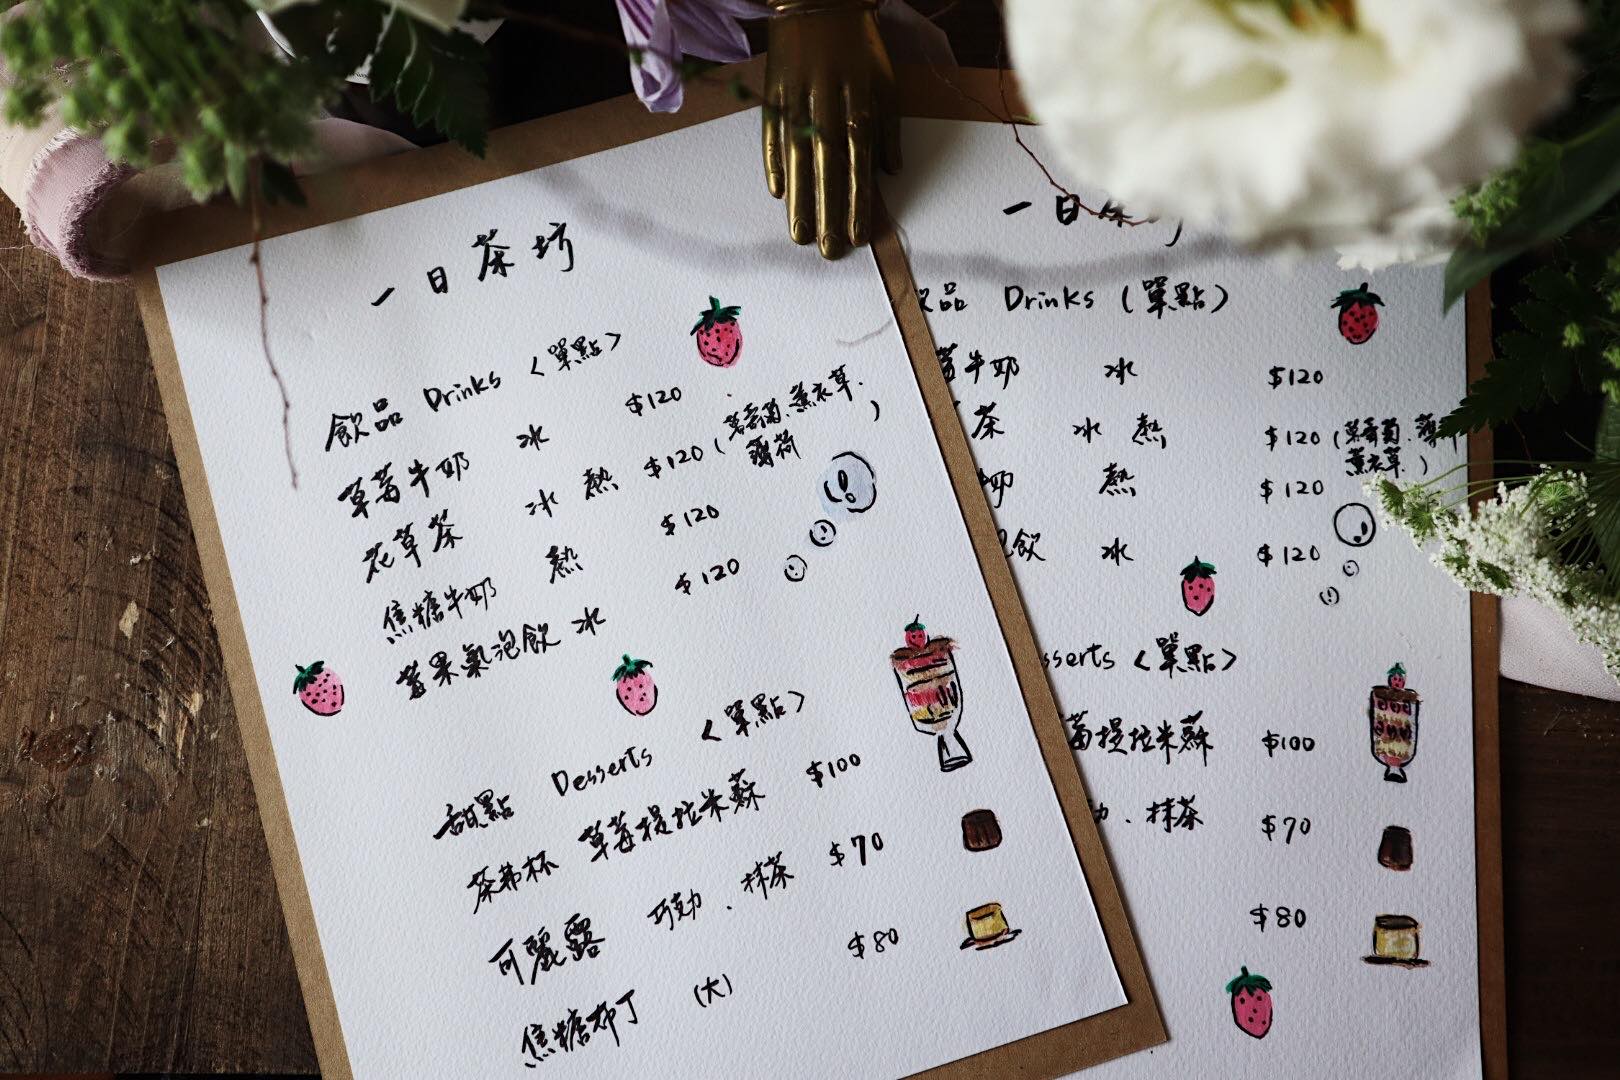 一日茶坊
飲品 Drinks〈單點〉
草莓牛奶 冰 $120
花草茶 冰 熱 $120 (洋甘菊.薰衣草.
薄荷 )
焦糖牛奶 熱 $120
莓果氣泡飲 冰 $120
甜點 Desserts〈單點〉
茶弗杯 草莓提拉米蘇 $100
可麗露 巧克力.抹茶 $70
焦糖布丁 (大) $80
一日茶
品 Drinks (單點)
莓牛奶 冰 $120
茶 冰 熱 $120 (
薰衣草.)
奶 熱 $120
飲 冰 $120
sserts〈單點〉
莓提拉米蘇 $100
.抹茶 $70
$80